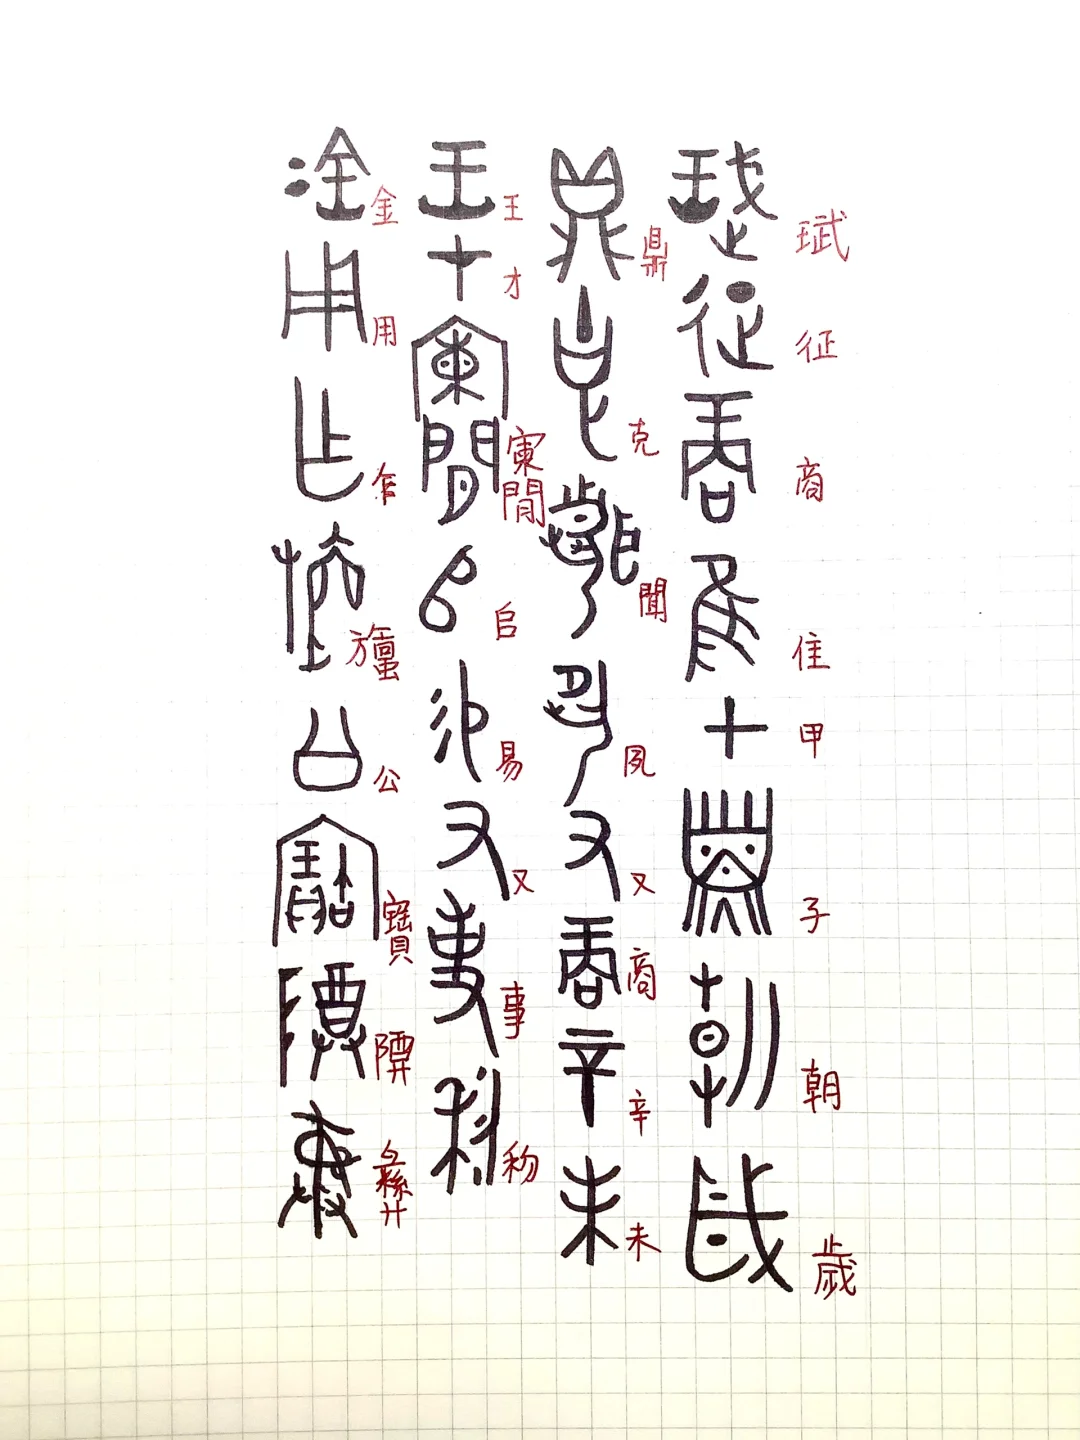 珷征商隹甲子朝歲
鼎克聞夙又商辛未
王才間𠂤易又事𥝢
金用乍公寶彝